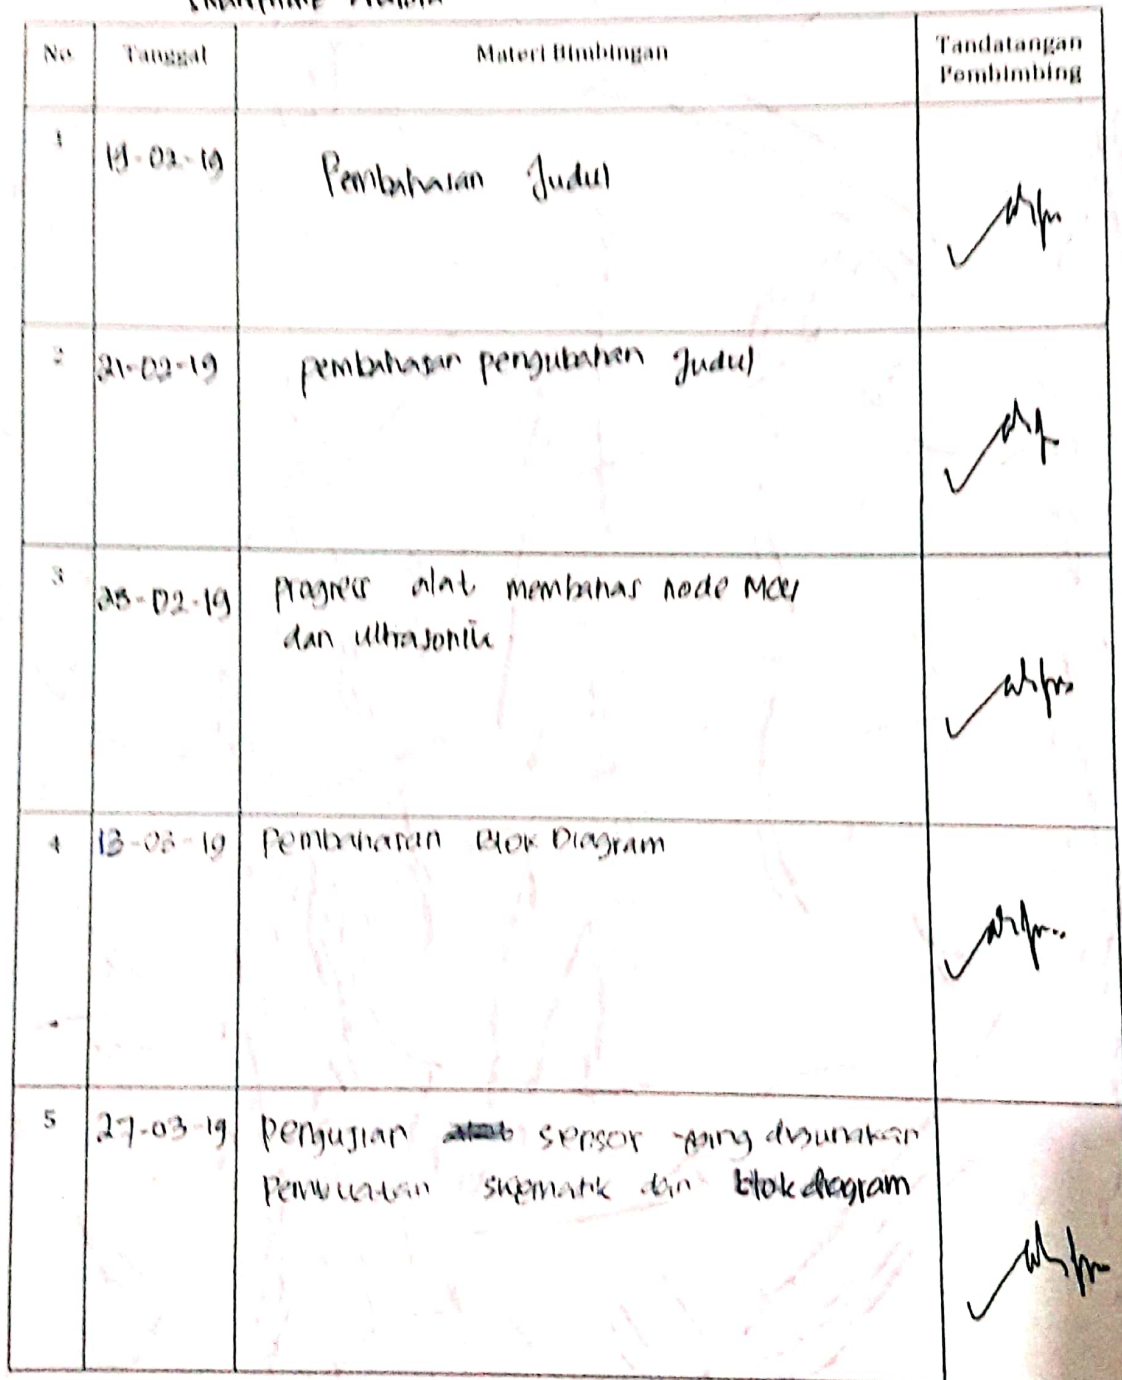 No Tanggal Materi Bimbingan Tandatangan
Pembimbing
1 19-02-19 Pembahasan Judul
2 21-02-19 pembahasan pengubahan Judul
3 25-02-19 progress alat membahas node MCU
dan ultrasonic
4 13-03-19 Pembahasan Blok Diagram
5 27-03-19 pengujian sensor yang digunakan
Pembuatan skematik dan blok diagram